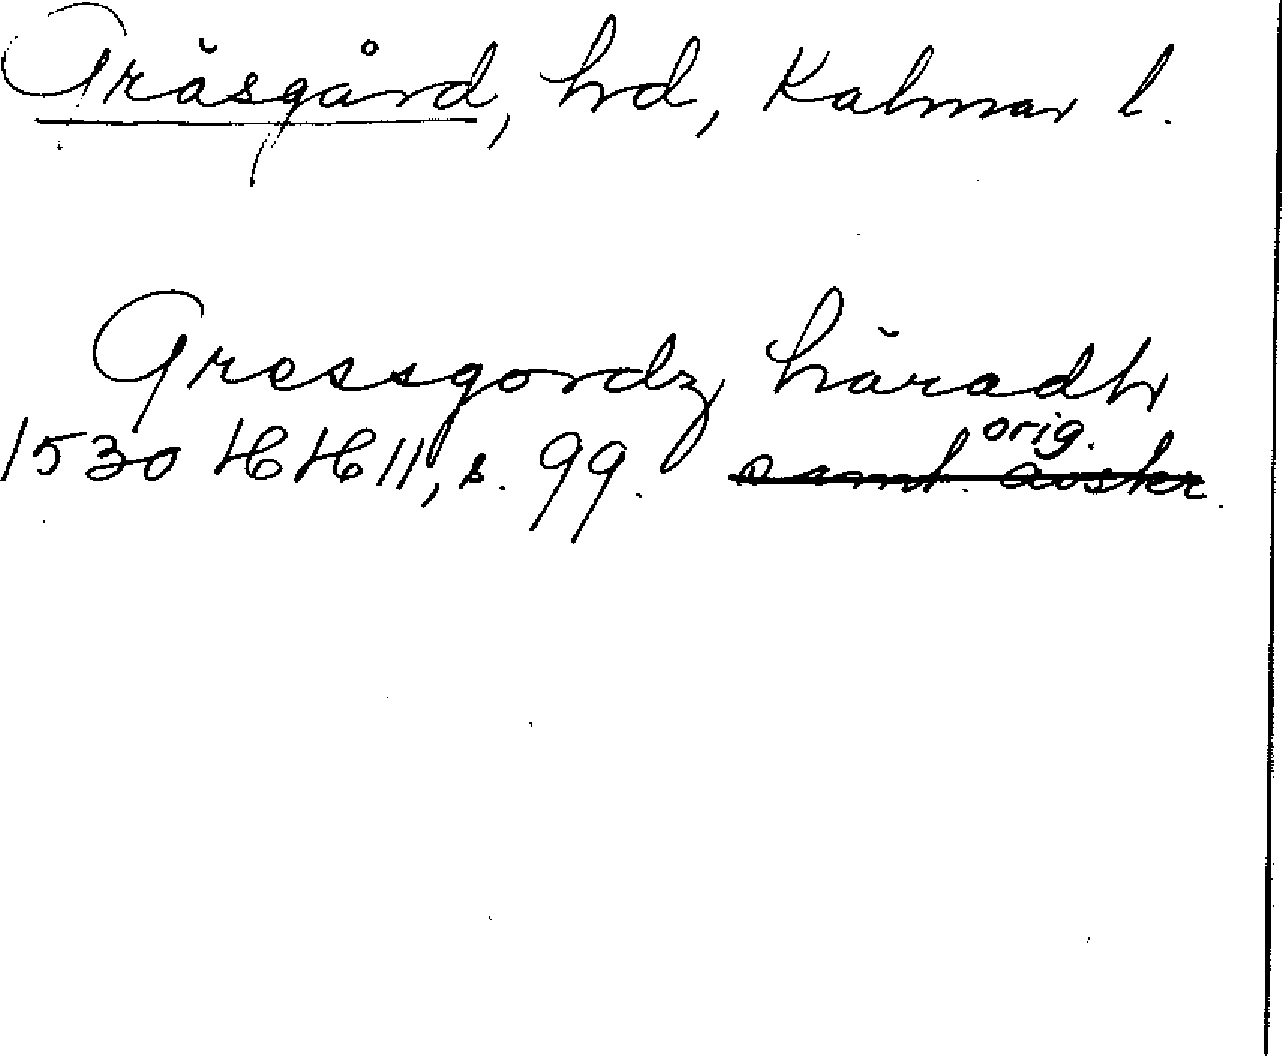 Gräsgård, hd, Kalmar l.
Gressgordz häradh
1530 HH 11, s. 99. orig.
samt. avskr.